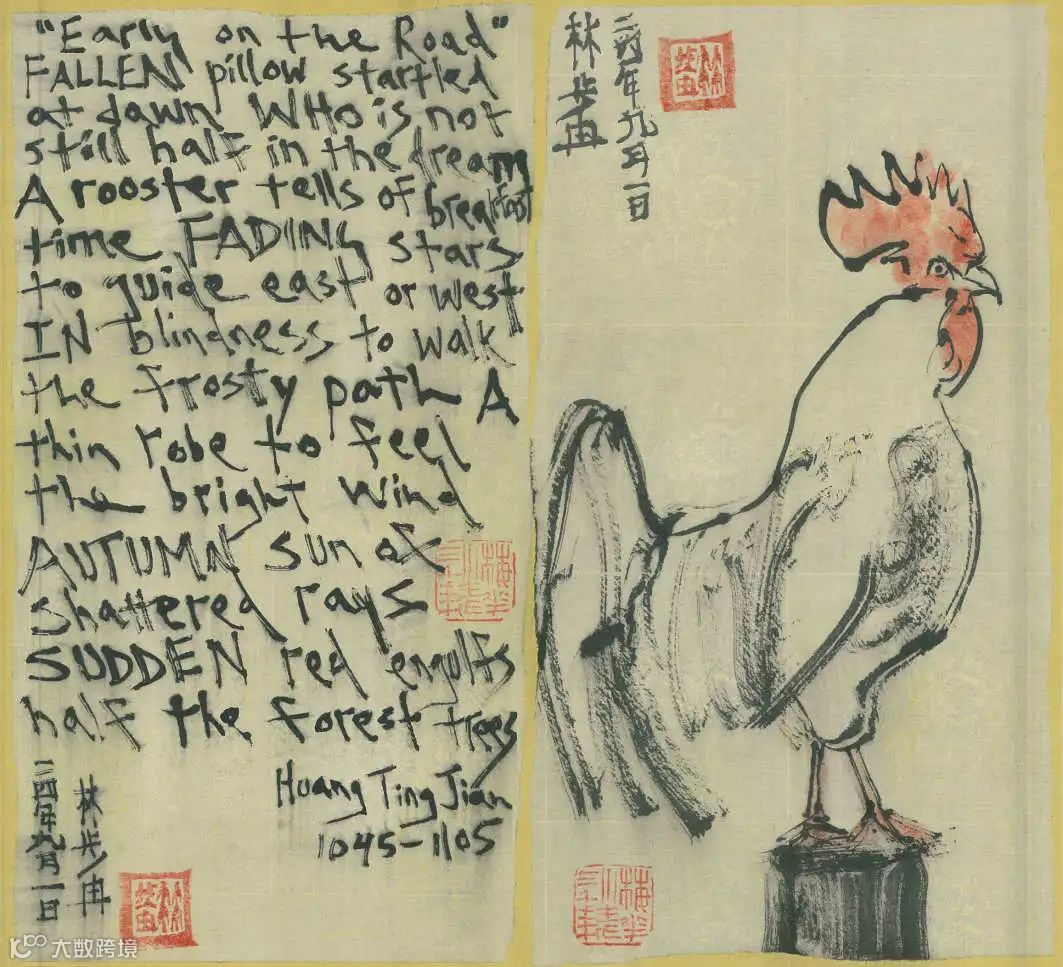 "Early on the Road"
FALLEN pillow startled
at dawn WHO is not
still half in the dream
A rooster tells of breakfast
time FADING stars
to guide east or west
IN blindness to walk
the frosty path A
thin robe to feel
the bright wind
AUTUMN sun of
shattered rays
SUDDEN red engulfs
half the forest trees
Huang Ting Jian
1045-1105
林步冉
二四年九月一日
二四年九月一日
林步冉
大数跨境